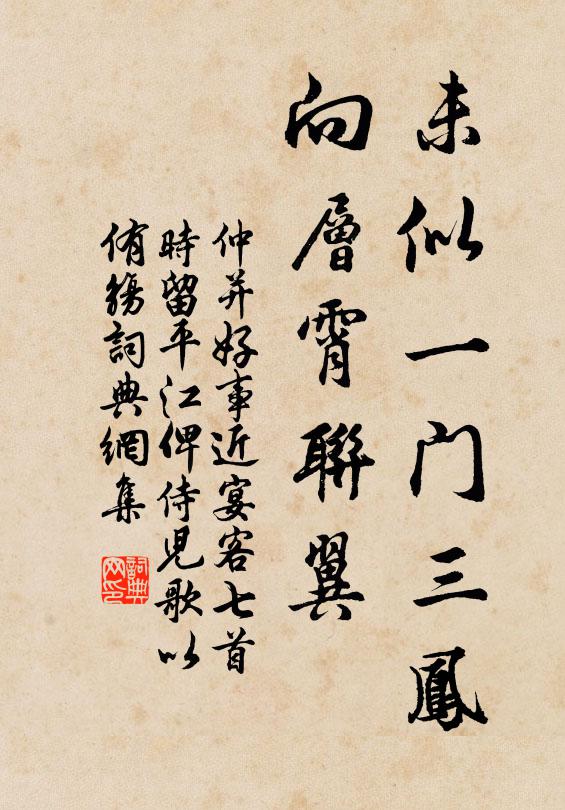 未似一门三鳳
向層霄聯翼
仲并好事近宴客七首
時留平江俾侍児歌以
侑觴詞典網集
詞典
网印